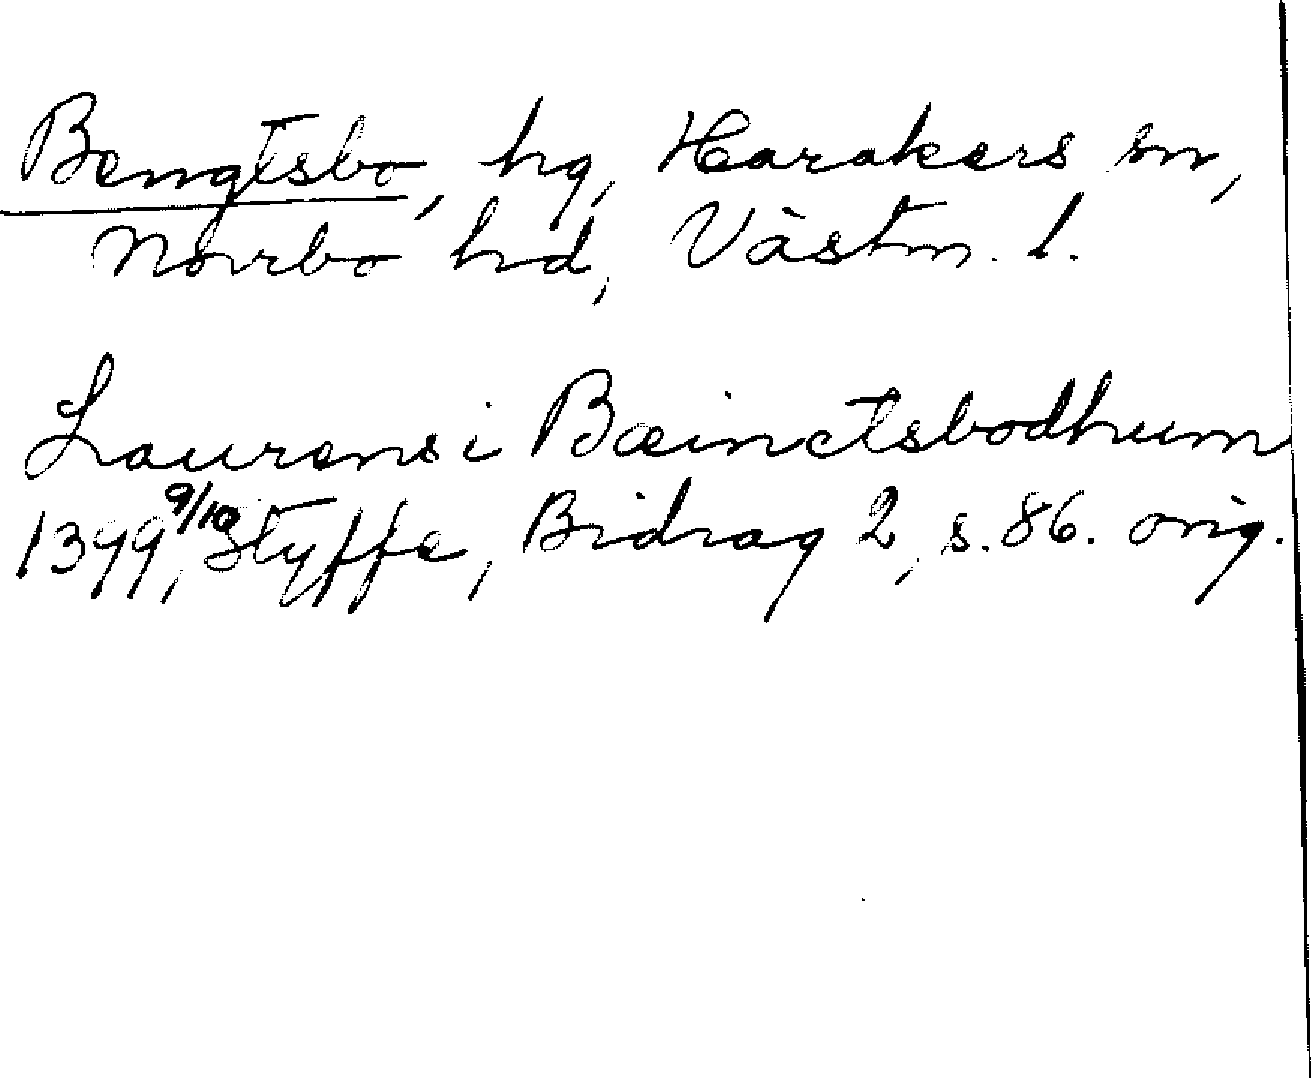 Bengtsbo, hg, Harakers sn,
Norrbo hd, Västm. l.
Laurens i Bæinctsbodhum
1399 9/10, Styffe, Bidrag 2, s. 86. orig.